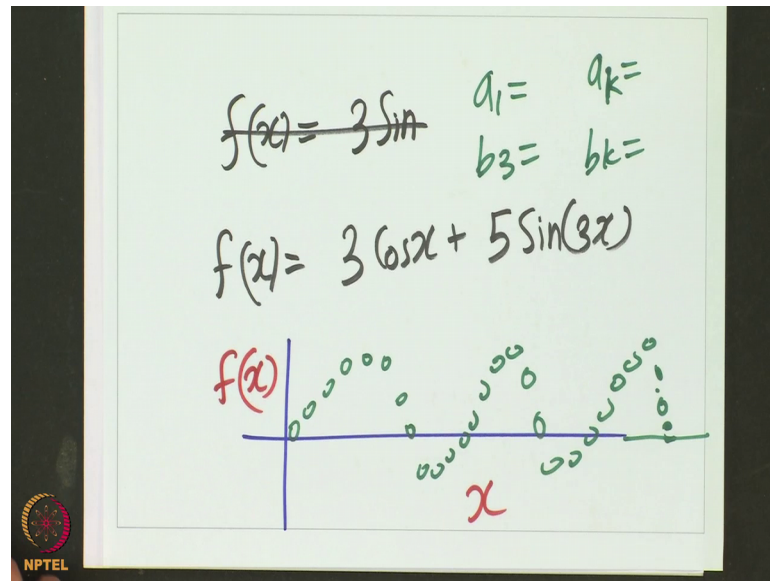 f(x) = 3 Sin
a1= ak=
b3= bk=
f(x) = 3 Cosx + 5 Sin(3x)
f(x)
x
NPTEL